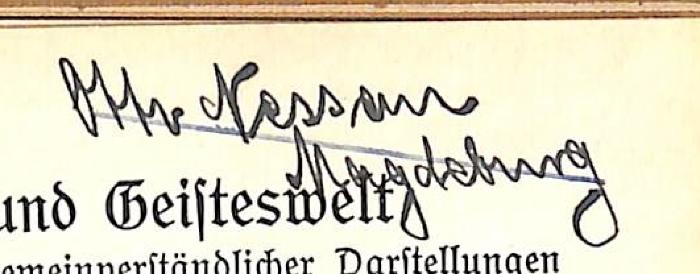 Otto Nassau
Magdeburg
und Geisteswelt
gemeinverständlicher Darstellungen